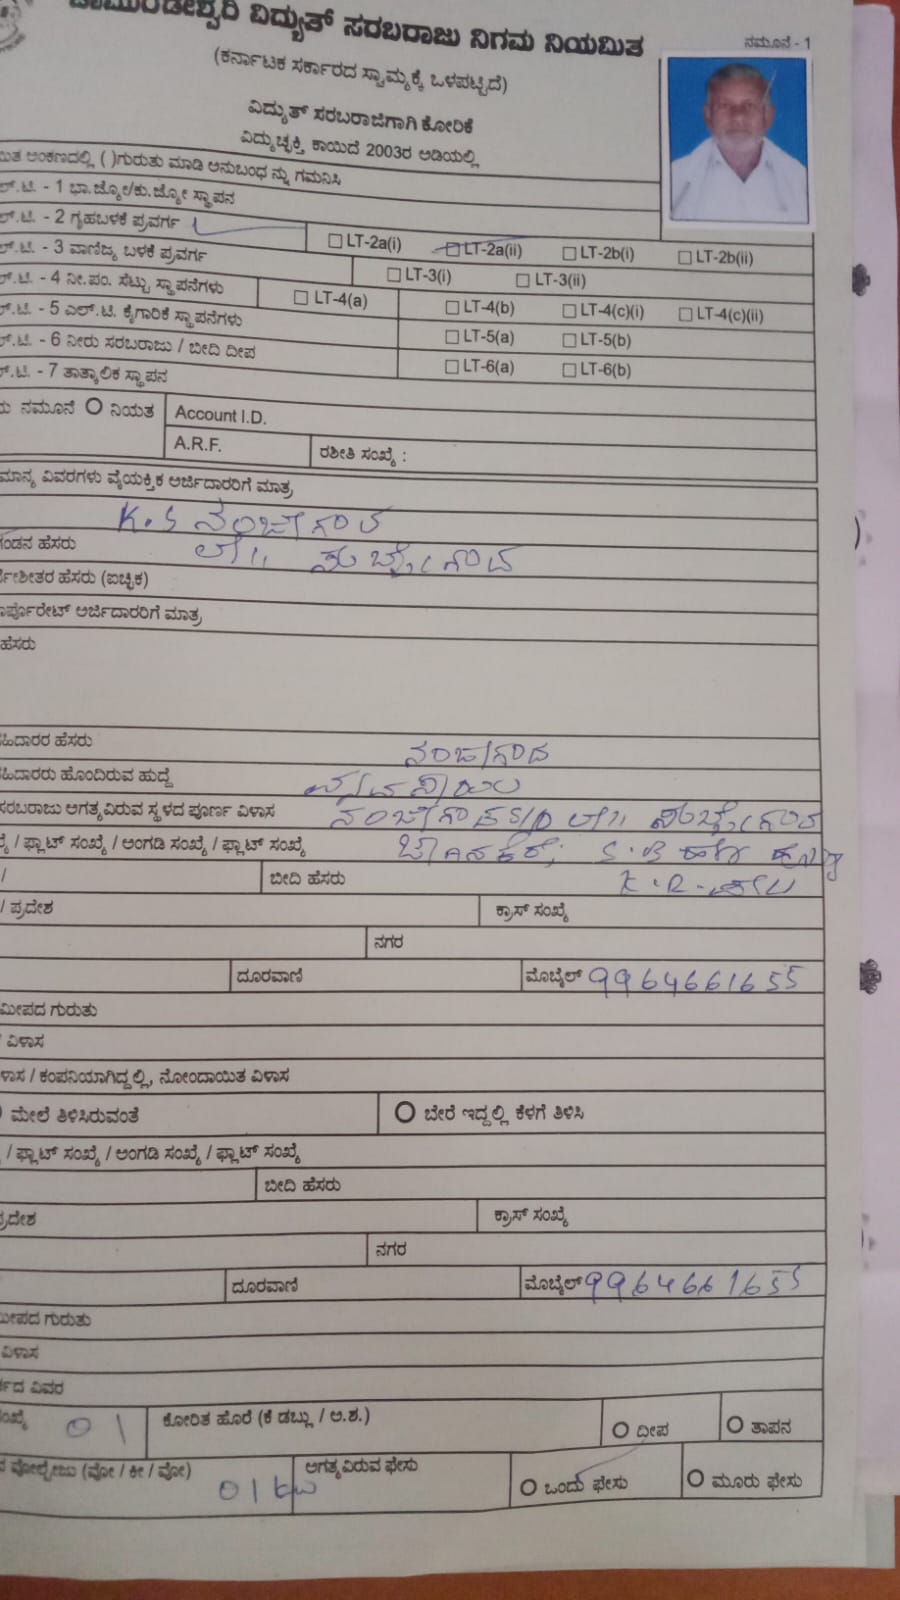 ವಿದ್ಯುತ್ ಸರಬರಾಜು ನಿಗಮ ನಿಯಮಿತ
ನಮೂನೆ - 1
(ಕರ್ನಾಟಕ ಸರ್ಕಾರದ ಸ್ವಾಮ್ಯಕ್ಕೆ ಒಳಪಟ್ಟಿದೆ)
ವಿದ್ಯುತ್ ಸರಬರಾಜಿಗಾಗಿ ಕೋರಿಕೆ
ವಿದ್ಯುಚ್ಛಕ್ತಿ ಕಾಯಿದೆ 2003ರ ಅಡಿಯಲ್ಲಿ
ಅಂಕಣದಲ್ಲಿ ( )ಗುರುತು ಮಾಡಿ ಅನುಬಂಧ ನ್ನು ಗಮನಿಸಿ
ಲ್.ಟಿ. - 1 ಭಾ.ಜ್ಯೋ/ಕು.ಜ್ಯೋ ಸ್ಥಾಪನ
ಲ್.ಟಿ. - 2 ಗೃಹಬಳಕೆ ಪ್ರವರ್ಗ
LT-2a(i) LT-2a(ii) LT-2b(i) LT-2b(ii)
ಲ್.ಟಿ. - 3 ವಾಣಿಜ್ಯ ಬಳಕೆ ಪ್ರವರ್ಗ
LT-3(i) LT-3(ii)
ಲ್.ಟಿ. - 4 ನೀ.ಪಂ. ಸೆಟ್ಟು ಸ್ಥಾಪನೆಗಳು
LT-4(a) LT-4(b) LT-4(c)(i) LT-4(c)(ii)
ಲ್.ಟಿ. - 5 ಎಲ್.ಟಿ. ಕೈಗಾರಿಕೆ ಸ್ಥಾಪನೆಗಳು
LT-5(a) LT-5(b)
ಲ್.ಟಿ. - 6 ನೀರು ಸರಬರಾಜು / ಬೀದಿ ದೀಪ
LT-6(a) LT-6(b)
ಲ್.ಟಿ. - 7 ತಾತ್ಕಾಲಿಕ ಸ್ಥಾಪನ
ನಮೂನೆ ನಿಯತ Account I.D.
A.R.F. ರಶೀತಿ ಸಂಖ್ಯೆ :
ಮಾನ್ಯ ವಿವರಗಳು ವೈಯಕ್ತಿಕ ಅರ್ಜಿದಾರರಿಗೆ ಮಾತ್ರ
K.S ನಂಜೇಗೌಡ
ಗಂಡನ ಹೆಸರು
ಹೆಸರು (ಐಚ್ಛಿಕ)
ಅರ್ಜಿದಾರರಿಗೆ ಮಾತ್ರ
ಹೆಸರು
ಹಿದಾರರ ಹೆಸರು ನಂಜೇಗೌಡ
ಹಿದಾರರು ಹೊಂದಿರುವ ಹುದ್ದೆ
ಸರಬರಾಜು ಅಗತ್ಯವಿರುವ ಸ್ಥಳದ ಪೂರ್ಣ ವಿಳಾಸ ನಂಜೇಗೌಡ S/O
/ ಫ್ಲಾಟ್ ಸಂಖ್ಯೆ / ಅಂಗಡಿ ಸಂಖ್ಯೆ / ಫ್ಲಾಟ್ ಸಂಖ್ಯೆ
/ ಬೀದಿ ಹೆಸರು
/ ಪ್ರದೇಶ ಕ್ರಾಸ್ ಸಂಖ್ಯೆ
ನಗರ
ದೂರವಾಣಿ ಮೊಬೈಲ್ 9964661655
ಮೀಪದ ಗುರುತು
ವಿಳಾಸ
ಳಾಸ / ಕಂಪನಿಯಾಗಿದ್ದಲ್ಲಿ, ನೋಂದಾಯಿತ ವಿಳಾಸ
ಮೇಲೆ ತಿಳಿಸಿರುವಂತೆ ಬೇರೆ ಇದ್ದಲ್ಲಿ ಕೆಳಗೆ ತಿಳಿಸಿ
/ ಫ್ಲಾಟ್ ಸಂಖ್ಯೆ / ಅಂಗಡಿ ಸಂಖ್ಯೆ / ಫ್ಲಾಟ್ ಸಂಖ್ಯೆ
ಬೀದಿ ಹೆಸರು
ಪ್ರದೇಶ ಕ್ರಾಸ್ ಸಂಖ್ಯೆ
ನಗರ
ದೂರವಾಣಿ ಮೊಬೈಲ್ 9964661655
ಮೀಪದ ಗುರುತು
ವಿಳಾಸ
ವಿವರ
01 ಕೋರಿತ ಹೊರೆ (ಕೆ ಡಬ್ಲು / ಅ.ಶ.) ದೀಪ ತಾಪನ
ವೋಲ್ಟೇಜು (ವೋ / ಕೀ / ವೋ) 01 kw ಅಗತ್ಯವಿರುವ ಫೇಸು ಒಂದು ಫೇಸು ಮೂರು ಫೇಸು